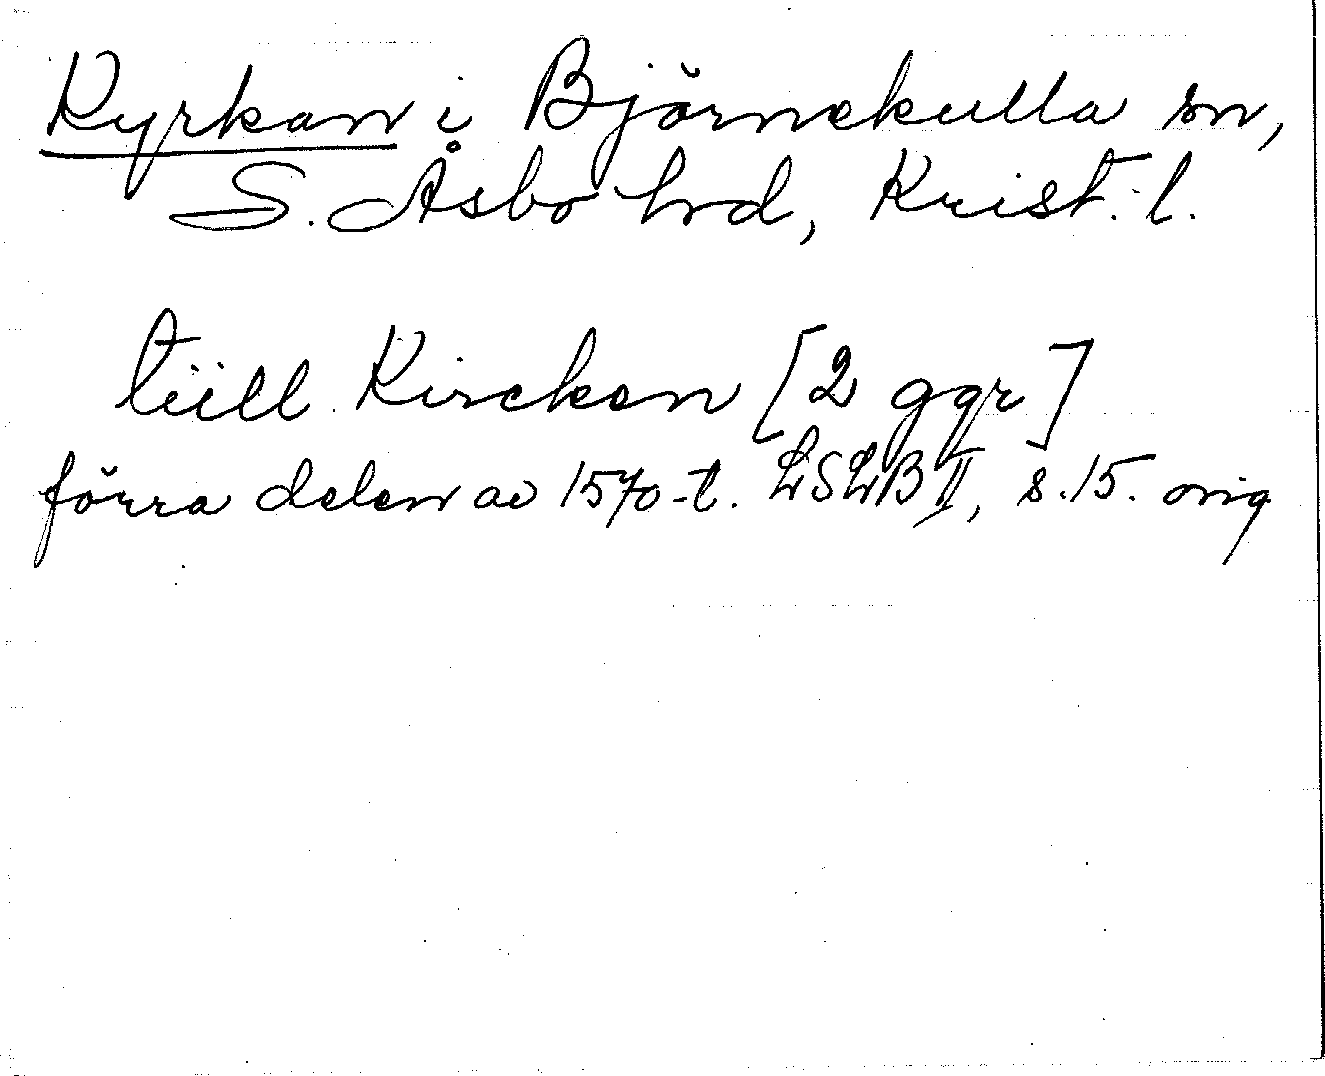 Kyrkan i Björnekulla sn,
S. Åsbo hrd, Krist. l.
tiill Kircken [2 ggr]
förra delen av 1570-t. LSLB II, s. 15. orig